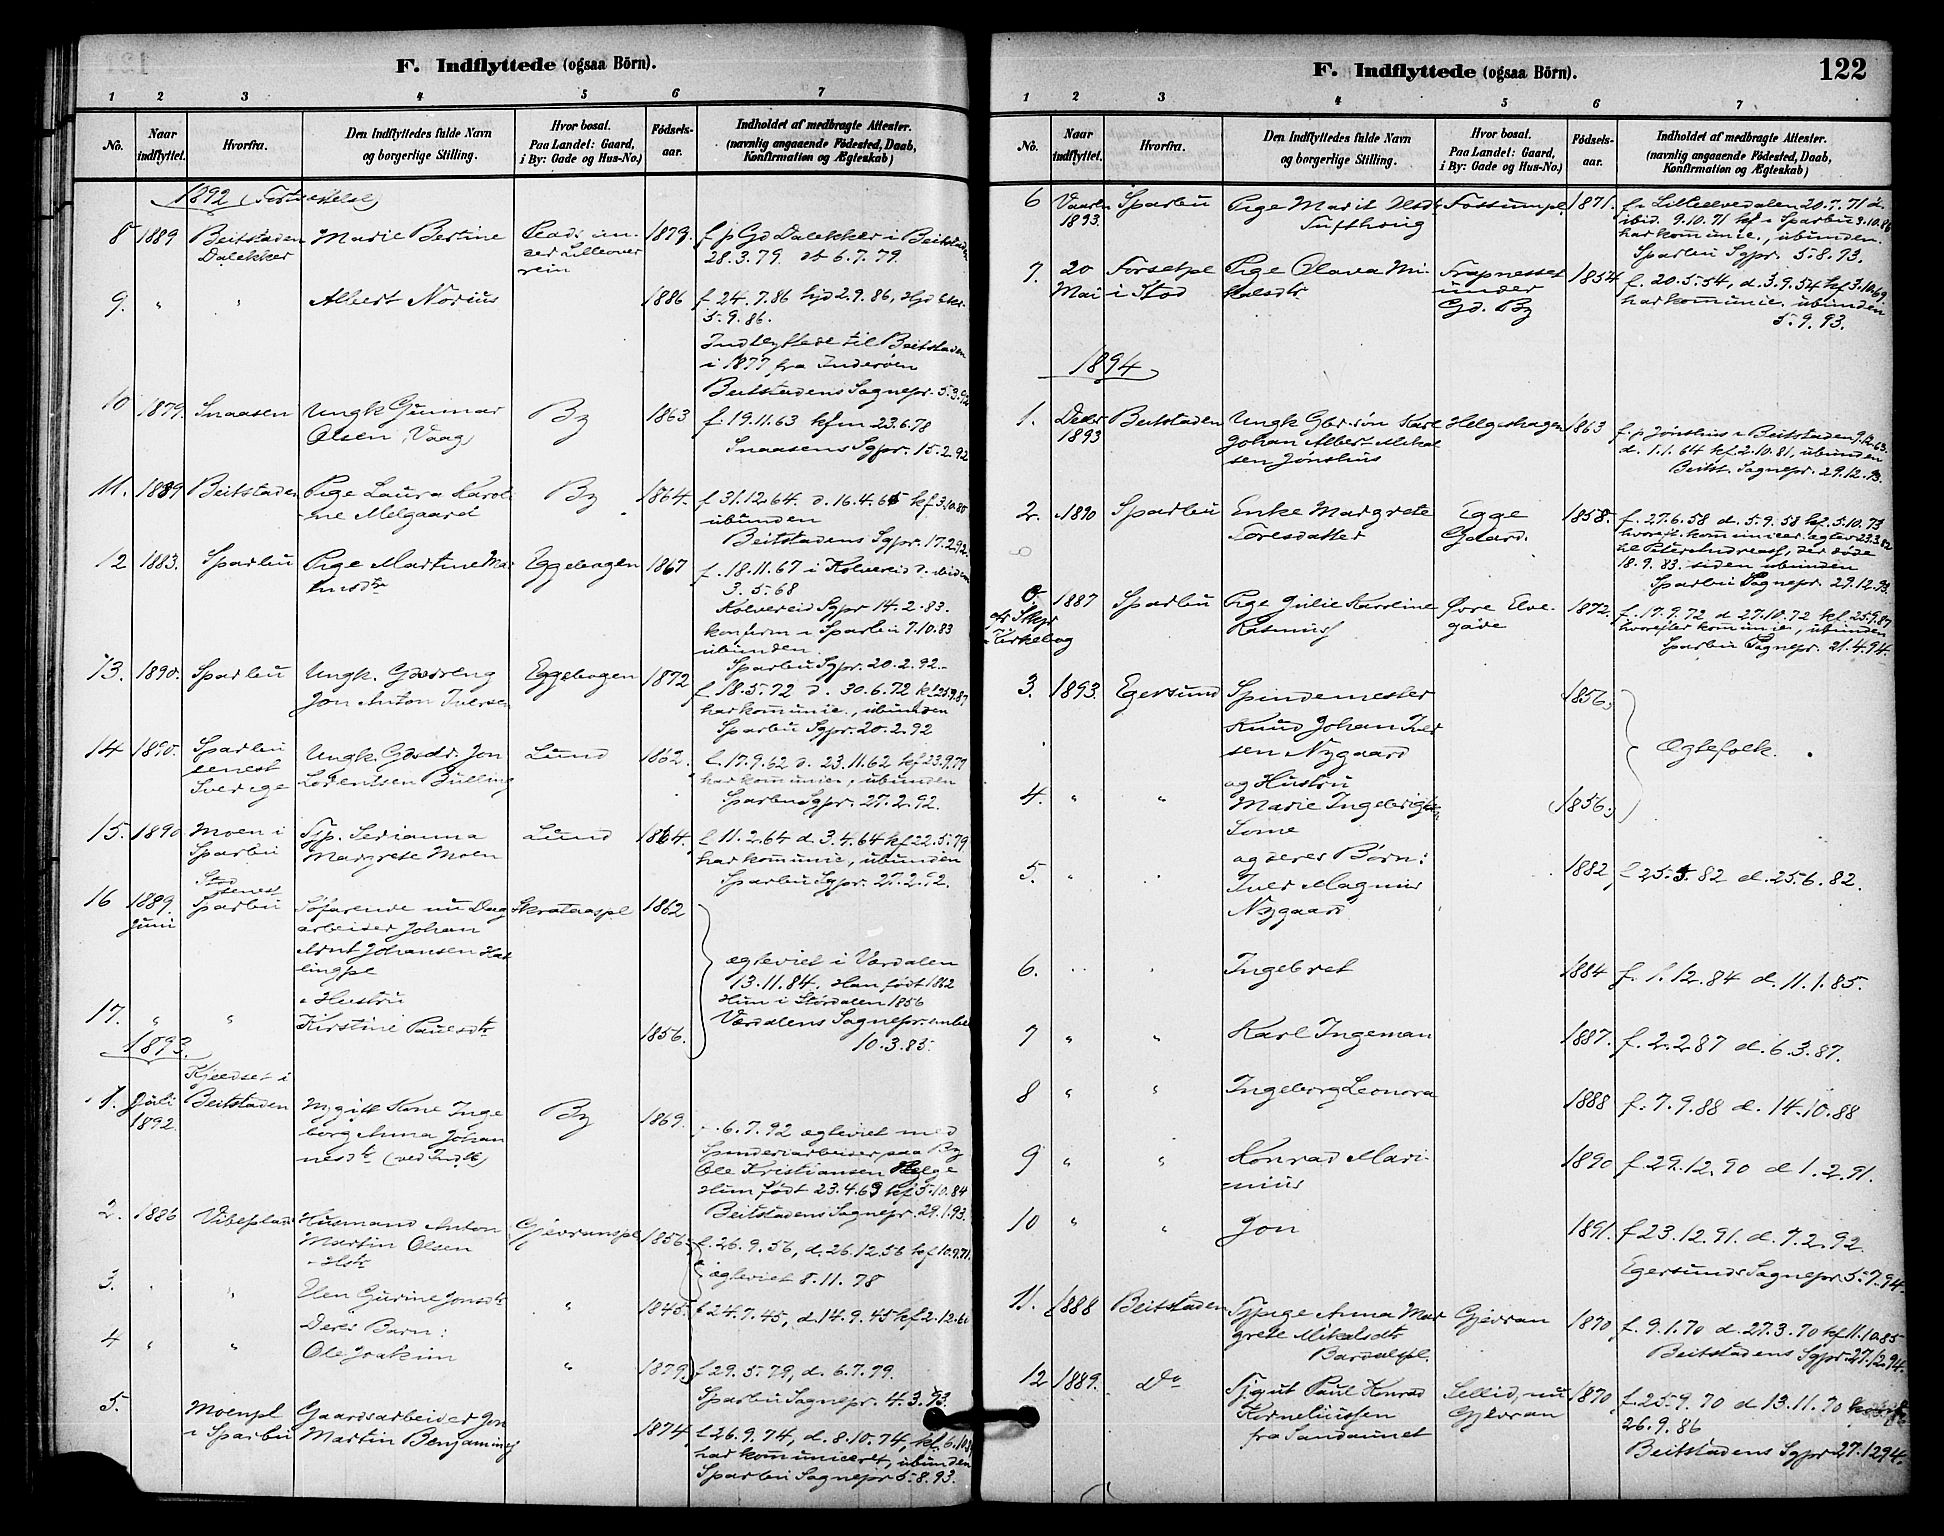 F. Indflyttede (ogsaa Börn).
1 2 3 4 5 6 7
No.
Naar
indflyttet.
Hvorfra.
Den Indflyttedes fulde Navn
og borgerlige Stilling.
Hvor bosat.
Paa Landet: Gaard,
i By: Gade og Hus-No.)
Fødsels-
aar.
Indholdet af medbragte Attester.
(navnlig angaaende Födested, Daab,
Konfirmation og Ægteskab)
1892 (Fortsættelse)
8 1889 Beitstaden Marie Bertine 1879. f p Gd Dalekker i Beitstaden
Dalekker 28.3.79. 6.7.79.
9. " " Albert Norius 1886 f 24.7.86 hjd 2.9.86,
5.9.86.
Indflyttede til Beitstaden
i 1877 fra Inderøen
Beitstadens Sognepr. 5.3.92
10 1879. Snaasen Ungk Gunnar By 1863 f. 19.11.63 kfm 23.6.78
Olsen (Vaag) Snaasens Sgpr. 15.2.92
11. 1889 Beitstaden Pige Laura Karoli By 1864. f 31.12.64. d. 16.4.65 kf 3.10.80
-ne Melgaard ubunden
Beitstadens Sgpr. 17.2.92.
12 1883. Sparbu Pige Martine Ma Eggebogen 1867 f. 18.11.67 i Kolvereid d. ibidem
3.5.68
Kolvereid Sgpr 14.2.83.
konfirm i Sparbu 7.10.83
ubunden.
Sparbu Sgpr. 20.2.92.
13. 1890. Sparbu Ungk. Gaardreng Eggebogen 1872 f. 18.5.72 d. 30.6.72 kf 25.9.87
Jon Anton Iversen har kommunic., ubunden
Sparbu Sgpr. 20.2.92
14 1890. Sparbu Ungk. Gaardr. Jon Lund 1862. f. 17.9.62 d. 23.11.62 kf 23.9.77
senest Lorentsen Bulling har kommunic., ubunden
Sverige Sparbu Sgpr. 27.2.92.
15. 1890 Moen i Tjp. Serianna Lund 1864. f 11.2.64 d. 3.4.64 kf 22.5.79
Sparbu Margrete Moen har kommunic, ubunden
Sparbu Sgpr. 27.2.92.
Stod
senest
16 1889. Sparbu Søfarende nu Dag 1862
Juni arbeider Johan
Arnt Johansen Hal
lingpl
ægteviet i Værdalen
13.11.84. Han født 1862
Hun i Størdalen 1856
Værdalens Sognepr. embed
10.3.85.
& Hustru
17. " " Kirstine Paulsdtr 1856.
1893.
Kjeldset i
1. Juli Beitstaden Nygift Kone Inge By 1869. 6.7.92 ægteviet med
1892. borg Anna Johan Spinderiarbeider paa By
nesdtr (ved Indfl) Ole Kristiansen Helge
Hun født 23.4.69 kf 5.10.84
Beitstadens Sognepr. 29.1.93.
2. 1886 Vibeplads Husmand Anton Gjevranspl 1856. f. 26.9.56, d. 26.12.56 kf 10.9.71.
Martin Olsen ægteviet 8.11.78
& Hstr
3. " " Elen Gurine Jonsdtr " 1845. f 24.7.45, d. 14.9.45 kf 2.12.60
Deres Barn:
4 " " Ole Joakim " 1879. f 29.5.79, d. 6.7.79.
Sparbu Sognepr. 4.3.93.
5. Moenpl Gaardsarbeider Jon 1874. f. 26.9.74, d. 8.10.74, kf. 6.10.
i Sparbu Martin Benjaminsj har kommuniceret, ubunden
Sparbu Sognepr 5.8.93.
F. Indflyttede (ogsaa Börn).
122
1 2 3 4 5 6 7
No.
Naar
indflyttet.
Hvorfra.
Den Indflyttedes fulde Navn
og borgerlige Stilling.
Hvor bosat.
Paa Landet: Gaard,
i By: Gade og Hus-No.)
Fødsels-
aar.
Indholdet af medbragte Attester.
(navnlig angaaende Födested, Daab,
Konfirmation og Ægteskab)
6 Vaaren Sparbu Pige Marit Fossumpl. 1871. f. Lilleelvedalen 20.7.71 d.
1893. Tufthoug ibid. 9.10.71 kf i Sparbu 3.10.86
har kommunic., ubunden.
Sparbu Sgpr. 5.8.93.
7. 20 Forsetpl Pige Olava Mi- 1854 f. 20.5.54, d. 3.9.54 kf 3.10.69.
Mai i Stod kalsdtr under har kommunic. ubunden
Gd. By 5.9.93.
1894
1. Decbr Beitstaden Ungk Gbr.søn Karl Helgeshagen 1863 f. p Jønshus i Beitstaden 9.12.63.
1893 Johan Albert Mikal d. 1.1.64 kf 2.10.81, ubunden
sen Jønshus Beitst. Sognepr. 29.12.93.
2. 1890 Sparbu Enke Margrete Egge 1858. f. 27.6.58 d. 5.9.58 kf. 5.10.73
Toresdatter Gaard. hvoreft. kommunicer. egtev 23.3.82
til Peter Andreasj, der døde
18.9.83. siden ubunden
Sparbu Sognepr. 29.12.93.
0. 1887 Sparbu Pige Julie Karoline Øvre Elve- 1872. f. 17.9.72 d. 27.10.72 kf. 25.9.87
Rasmusj gade hvorefter kommunic., ubunden
Kirkebog Sparbu Sognepr. 21.4.94.
3. 1893. Egersund Spindemester 1856.
Knud Johan Iver
sen Nygaard
Ægtefolk.
og Hustru
4. " " Marie Ingebrigts- 1856.
Lome
og deres Børn:
5. " " Iver Magnus 1882, f 25.5.82 d. 25.6.82.
Nygaard
6. " " Ingebret 1884 f. 1.12.84 d. 11.1.85.
7 " " Karl Ingeman 1887. f. 2.2.87 d. 6.3.87.
8 " " Ingeborg Leonora 1888 f. 7.9.88 d. 14.10.88
9 " " Konrad Mari- 1890 f. 29.12.90 d 1.2.91.
=nius
10 " " Jon 1891. f 23.12.91. d. 7.2.92.
Egersunds Sognepr. 5.7.94.
11. 1888 Beitstaden Tjpige Anna Mar Gjevran 1870 f. 9.1.70 d. 27.3.70 kf. 11.10.85
grete Mikalsdtr Beitstadens Sgpr. 27.12.94.
Bardalspl.
12 1889. Do Tjgut Paul Konrad Sellid, nu 1870 f. 25.9.70 d 13.11.70
Korneliussen Gjevran 26.9.86
fra Sandaunet Beitstadens Sgpr 27.12.94.